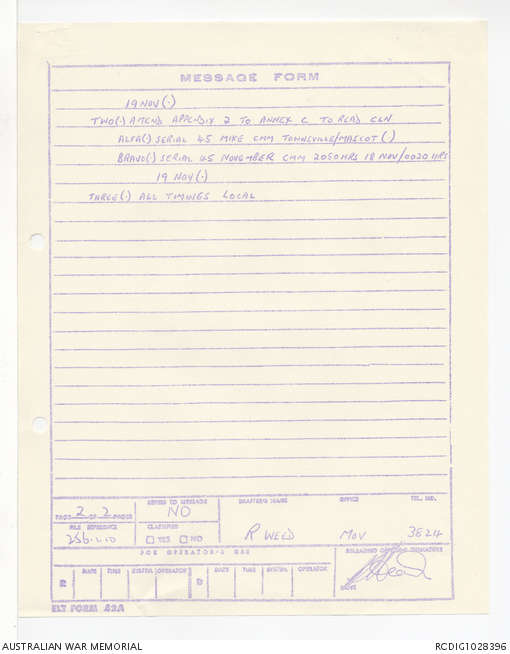 MESSAGE FORM
19 NOV (.)
TWO(.) AMEND APPENDIX 2 TO ANNEX C TO READ CLN
ALFA(.) SERIAL 45 MIKE CMM TOWNSVILLE/MASCOT (.)
BRAVO(.) SERIAL 45 NOVEMBER CMM 2050HRS 18 NOV/0020 HRS
19 NOV (.)
THREE(.) ALL TIMINGS LOCAL
PAGE 2 OF 2 PAGES
REFERS TO MESSAGE
NO
DRAFTERS NAME
OFFICE
TEL. NO.
FILE REFERENCE
CLASSIFIED
YES NO
R WEED
MOV
3624
FOR OPERATOR'S USE
RELEASING OFFICERS SIGNATURE
R
DATE TIME SYSTEM OPERATOR
D
DATE TIME SYSTEM OPERATOR
DATE
ELT FORM 42A
AUSTRALIAN WAR MEMORIAL
RCDIG1028396